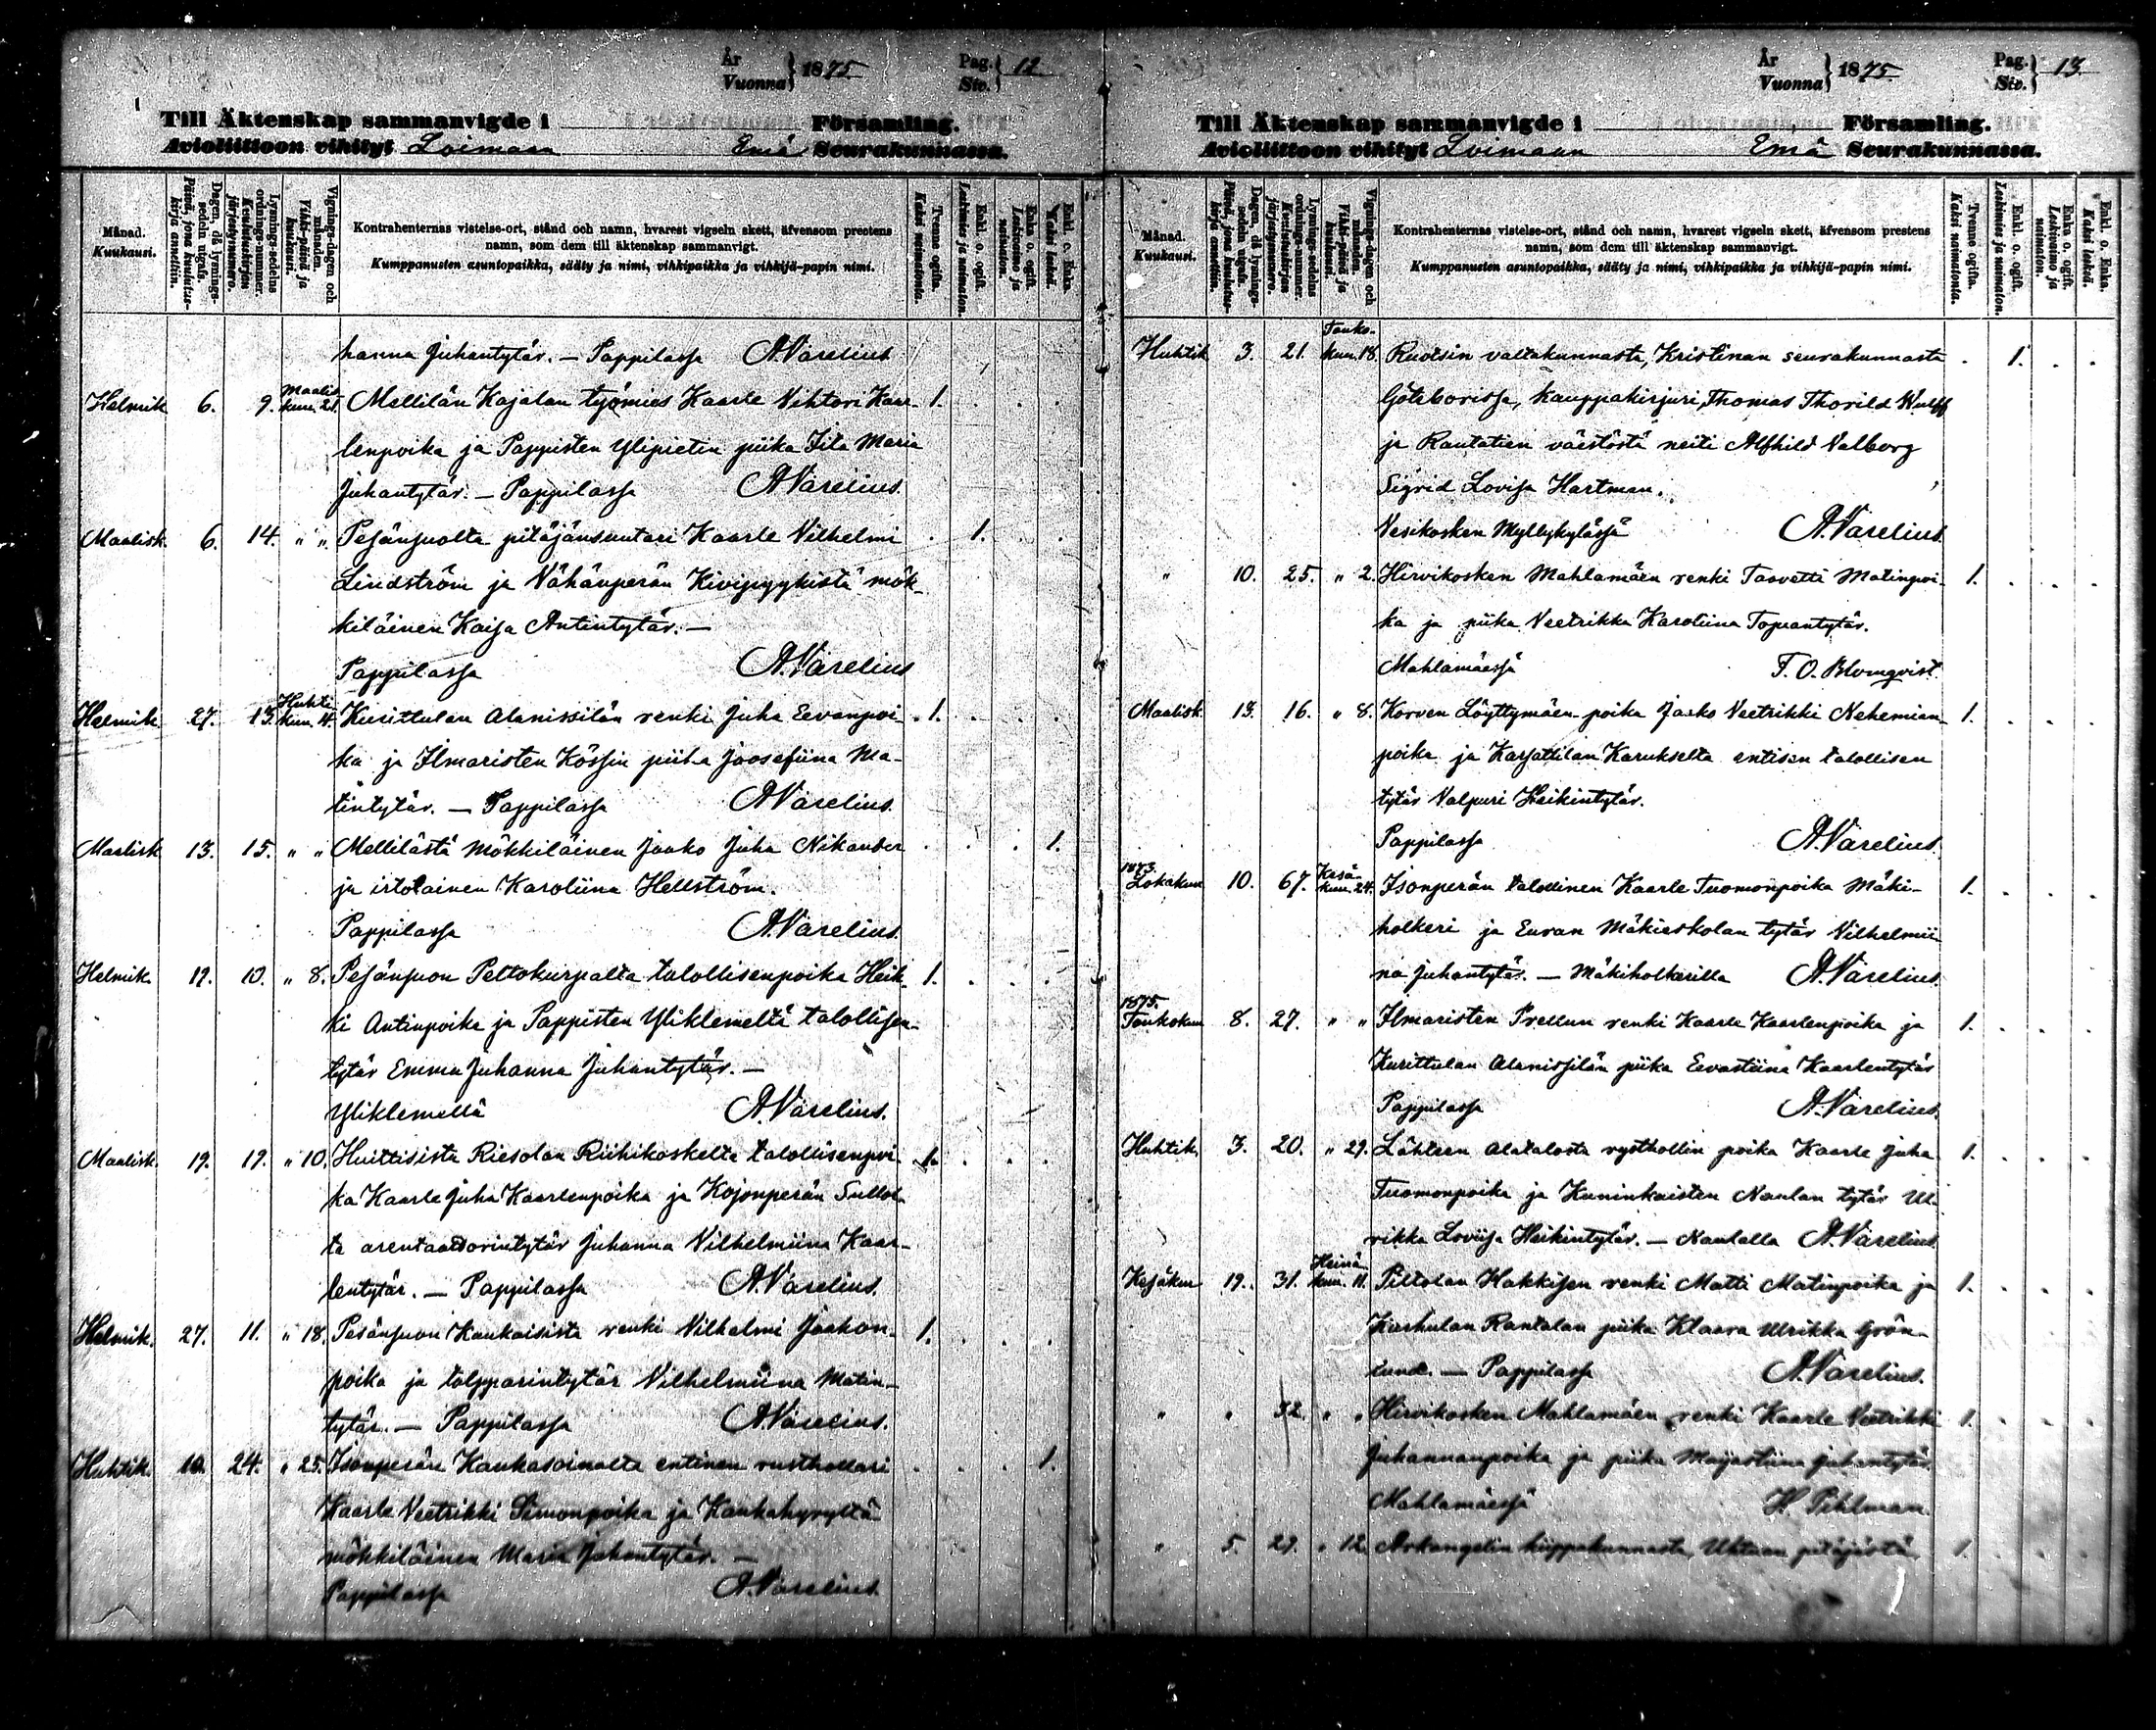 År
Vuonna } 1875
Pag.
Siv. } 12
Till Äktenskap sammanvigde i Församling.
Avioliittoon vihityt Loimaan Emä Seurakunnassa.
Månad.
Kuukausi.
Dagen, då lysnings-
sedeln utgafs.
Päivä, jona kuulutus-
kirja annettiin.
Lysnings-sedelns
ordnings-nummer.
Kuulutuskirjan
järjestysnumero.
Vignings-dagen och
månaden.
Vihki-päivä ja
kuukausi.
Kontrahenternas vistelse-ort, stånd och namn, hvarest vigseln skett, äfvensom prestens
namn, som dem till äktenskap sammanvigt.
Kumppanusten asuntopaikka, sääty ja nimi, vihkipaikka ja vihkijä-papin nimi.
Tvenne ogifta.
Kaksi naimatonta.
Enkl. o. ogift.
Leskimies ja naimaton.
Enka o. ogift.
Leskivaimo ja
naimaton.
Enkl. o. Enka.
Kaksi leskeä.
hanna Juhantytär. — Pappilassa A. Varelius
Helmik 6. 9. Maalis-
kuu. 21. Mellilän Kajalan työmies Kaarle Vihtori Kaar- 1.
lenpoika ja Pappisten Ylipietin piika Iita Maria
Juhantytär. — Pappilassa A. Varelius.
Maalisk. 6. 14. " " Pesänsuolta pitäjänsuutari Kaarle Vilhelmi . 1.
Lindström ja Vähänperän Kivipyykistä mök-
kiläinen Kaisa Antintytär. —
Pappilassa A. Varelius
Helmik. 27. 13. Huhti-
kuu. 4. Kurittulan Alanissilän renki Juha Eevanpoi- 1.
ka ja Ilmaristen Kössin piika Joosefiina Ma-
tintytär. — Pappilassa A. Varelius.
Maalisk 13. 15. " " Mellilästä Mökkiläinen Jaako Juha Nikander . . . 1.
ja irtolainen Karoliina Hellström.
Pappilassa A. Varelius.
Helmik. 19. 10. " 8. Pesänsuon Peltokurpalta talollisenpoika Heik- 1.
ki Antinpoika ja Pappisten Yliklemeltä talollisen-
tytär Emma Juhanna Juhantytär. —
Yliklemellä A. Varelius.
Maalisk. 19. 19. " 10. Huittisista Riesolan Riihikoskelta talollisenpoi- 1.
ka Kaarle Juha Kaarlenpoika ja Kojonperän
ta arentaattorintytär Juhanna Vilhelmiina Kaar-
lentytär. — Pappilassa A. Varelius.
Helmik. 27. 11. " 18. Pesänsuon Kaukaisista renki Vilhelmi Jaakon- 1.
poika ja talpparintytär Vilhelmiina Matin-
tytär. — Pappilassa A. Varelius.
Huhtik. 10. 24. " 25. Isonperän Kaukasoinalta entinen rusthollari . . . 1.
Kaarle Veetrikki Simonpoika ja Kaukahyryltä
mökkiläinen Maria Juhantytär. —
Pappilassa A. Varelius.
År
Vuonna } 1875
Pag.
Siv. } 13
Till Äktenskap sammanvigde i Församling.
Avioliittoon vihityt Loimaan Emä Seurakunnassa.
Månad.
Kuukausi.
Dagen, då lysnings-
sedeln utgafs.
Päivä, jona kuulutus-
kirja annettiin.
Lysnings-sedelns
ordnings-nummer.
Kuulutuskirjan
järjestysnumero.
Vignings-dagen och
månaden.
Vihki-päivä ja
kuukausi.
Kontrahenternas vistelse-ort, stånd och namn, hvarest vigseln skett, äfvensom prestens
namn, som dem till äktenskap sammanvigt.
Kumppanusten asuntopaikka, sääty ja nimi, vihkipaikka ja vihkijä-papin nimi.
Tvenne ogifta.
Kaksi naimatonta.
Enkl. o. ogift.
Leskimies ja naimaton.
Enka o. ogift.
Leskivaimo ja
naimaton.
Enkl. o. Enka.
Kaksi leskeä.
Huhtik 3. 21. Touko-
kuu. 18. Ruotsin valtakunnasta, Kristinan seurakunnasta . 1.
Göteborissa, kauppakirjuri, Thomas Thorild Wulff
ja Rautatien väestöstä neiti Alfhild Valborg
Sigrid Lovisa Hartman.
Vesikosken Myllykylässä A. Varelius.
" 10. 25. " 2. Hirvikosken Mahlamäen renki Taavetti Matinpoi- 1.
ka ja piika Veetrikka Karoliina Topiantytär.
Mahlamäessä F. O. Blomqvist.
Maalisk. 13. 16. " 8. Korven Löyttymäen poika Jaako Veetrikki Nehemian- 1.
poika ja Karsattilan Karukselta entisen talollisen
tytär Valpuri Heikintytär.
Pappilassa A. Varelius.
1873.
Lokakuu 10. 67. Kesä-
kuu. 24. Isonperän talollinen Kaarle Tuomonpoika Mäki- 1.
holkeri ja Euran Mäkieskolan tytär Vilhelmii-
na Juhantytär. — Mäkiholkerilla A. Varelius.
1875.
Toukokuu 8. 27. " " Ilmaristen Prellun renki Kaarle Kaarlenpoika ja 1.
Kurittulan Alanissilän piika Eevastiina Kaarlentytär
Pappilassa A. Varelius.
Huhtik. 3. 20. " 29. Lähteen Alatalosta rysthollin poika Kaarle Juha 1.
Tuomonpoika ja Kuninkaisten Nautan tytär Ul-
rikka Loviisa Heikintytär. — Nautalla A. Varelius.
Kesäkuu 19. 31. Heinä-
kuu. 11. Piltolan Hakkisen renki Matti Matinpoika ja 1.
Karhulan Rantalan piika Klaara Ulrikka Grön-
lund. — Pappilassa A. Varelius.
" " 32. " " Hirvikosken Mahlamäen renki Kaarle Veetrikki 1.
Juhannanpoika ja piika Maijastiina Juhantytär.
Mahlamäessä H. Pihlman.
" 5. 29. " 12. Arkangelin hiippakunnasta, Uhtuan pitäjästä 1.